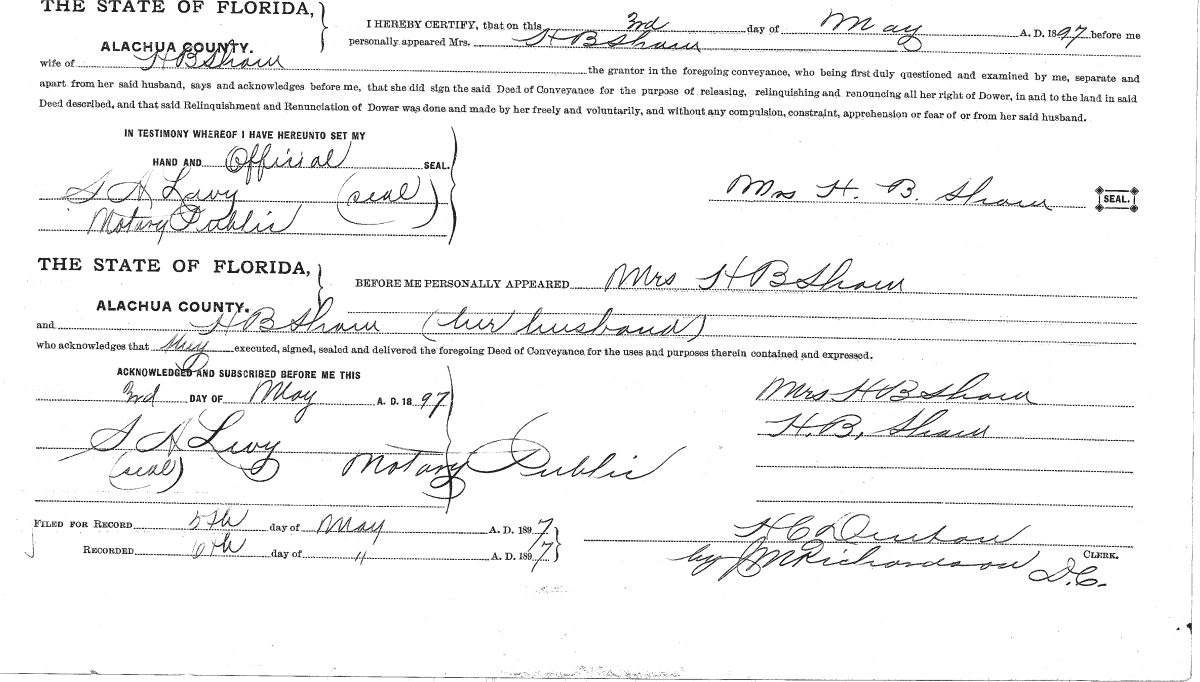 THE STATE OF FLORIDA,
ALACHUA COUNTY.
I HEREBY CERTIFY, that on this 3rd day of May A. D. 1897 before me
personally appeared Mrs. H B Shaw
wife of H B Shaw the grantor in the foregoing conveyance, who being first duly questioned and examined by me, separate and
apart from her said husband, says and acknowledges before me, that she did sign the said Deed of Conveyance for the purpose of releasing, relinquishing and renouncing all her right of Dower, in and to the land in said
Deed described, and that said Relinquishment and Renunciation of Dower was done and made by her freely and voluntarily, and without any compulsion, constraint, apprehension or fear of or from her said husband.
IN TESTIMONY WHEREOF I HAVE HEREUNTO SET MY
HAND AND Official SEAL.
S A Levy (seal)
Notary Public
Mrs H. B. Shaw SEAL.
THE STATE OF FLORIDA,
ALACHUA COUNTY.
BEFORE ME PERSONALLY APPEARED Mrs H B Shaw
and H B Shaw (her husband)
who acknowledges that they executed, signed, sealed and delivered the foregoing Deed of Conveyance for the uses and purposes therein contained and expressed.
ACKNOWLEDGED AND SUBSCRIBED BEFORE ME THIS
3rd DAY OF May A. D. 1897
S A Levy
(seal) Notary Public
Mrs H B Shaw
H. B. Shaw
FILED FOR RECORD 5th day of May A. D. 1897
RECORDED 6th day of " A. D. 1897
H C Denton
CLERK.
by J M Richardson D. C.